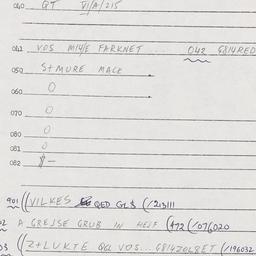 040 GT VI/A/215
041 VOS M14/E FARKNET ... 042 G814RED
050 S+MURE MACK
060 0
070 0
080 0
081 0
082 $-
901 ((VILKES QED GL$ (/213111
02 A GREJSE GRUB IN HEJF (472 (/076020
03 (Z+LUKTE QEL VOS... G814ZOLBET (/196032